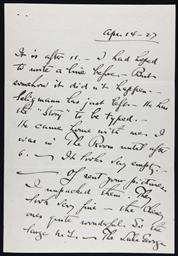 Apr. 14 - 27
It is after 11. - I had hoped
to write a line before - But
somehow it didn't happen -
Seligmann has just left - He has
the "Story" to be typed. -
He came home with me. I
was in The Room until after
6. - It looks very empty. -
of sent your pictures
I unpacked them. They
look very fine - the
ones quite wonderful. So the
large - The Lake George